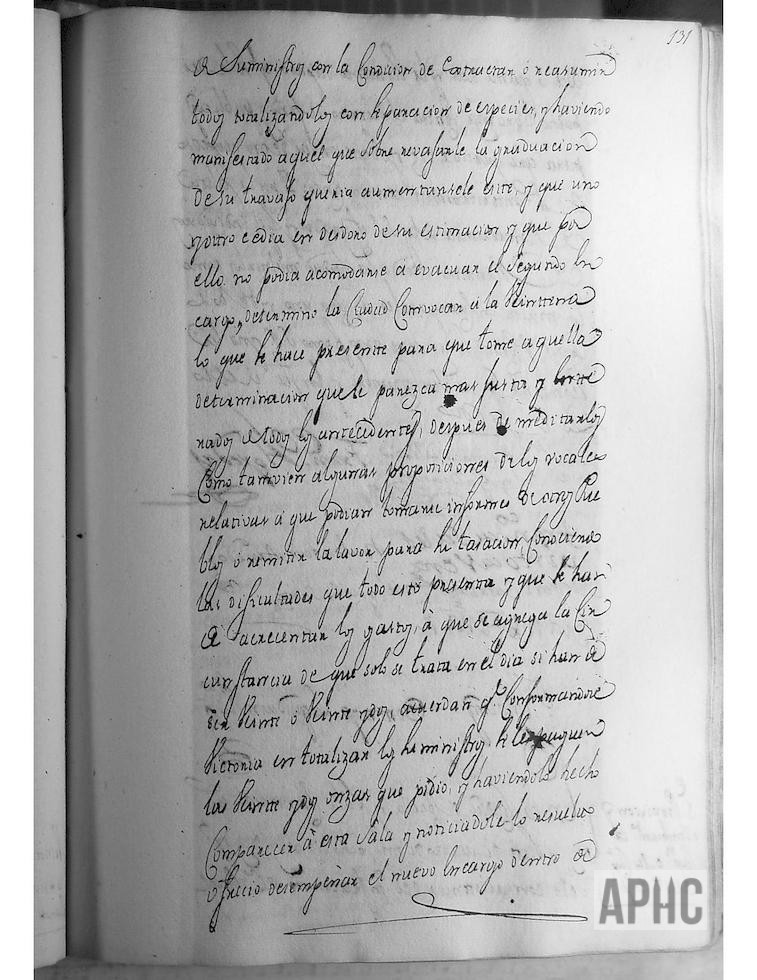 131
de Suministros, con la Condicion de Extractar ó reasumir
todos totalizandolos con separacion de especies, y haviendo
manifestado aquel que sobre revasarle la graduacion
de su travajo queria aumentarsele este, y que uno
y otro cedia en desdoro de su estimacion y que por
ello no podia acomodarse á evacuar el segundo En
cargo, determinó la Ciudad Convocar á la Veintena
lo que se hace presente para que tome aquella
determinacion que le parezca mas justa y
nados de todos los antecedentes, despues de meditarlos
Como tamvien algunas proposiciones de los vocales
relativas á que podian tomarse informes de otros Pue
blos ó remitir la lavor para su tasacion, Conociendo
las dificultades que todo esto presenta y que se han
de acrecentar los gastos, á que se agrega la Cir
cunstancia de que solo se trata en el dia si han de
ser Veinte ó Veinte y dos, acuerdan q.e Conformandose
Victoria en totalizar los Suministros, se le paguen
las Veinte y dos onzas que pidio, y haviendole hecho
Comparecer á esta Sala y noticiadole lo resuelto
ofrecio desempeñar el nuevo Encargo dentro de
APHC